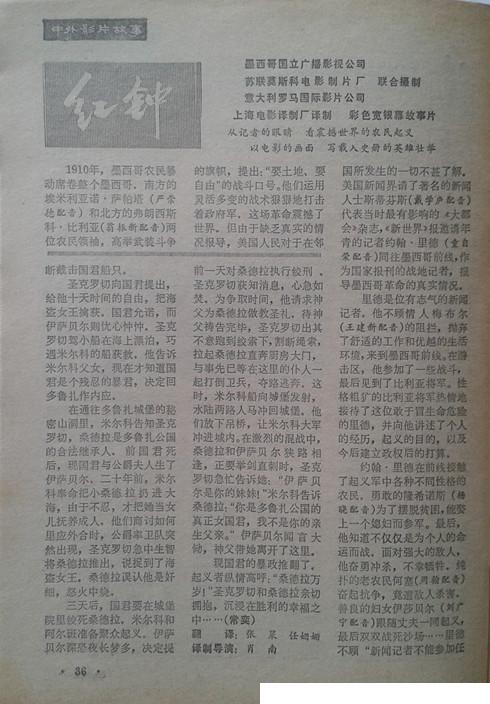 中外影片故事
红钟
墨西哥国立广播影视公司
苏联莫斯科电影制片厂 联合摄制
意大利罗马国际影片公司
上海电影译制厂译制 彩色宽银幕故事片
从记者的眼睛 看震撼世界的农民起义
以电影的画面 写载入史册的英雄壮举
1910年，墨西哥农民暴
动席卷整个墨西哥。南方的
埃米利亚诺·萨帕塔（严崇
德配音）和北方的弗朗西斯
科·比利亚（翁振新配音）两
位农民领袖，高举武装斗争
的旗帜，提出：“要土地、要
自由”的战斗口号。他们运用
灵活多变的战术狠狠地打击
着政府军，这场革命震撼了
世界。但由于缺乏真实的情
况报导，美国人民对于在邻
国所发生的一切不甚了解。
美国新闻界请了著名的新闻
人士斯蒂芬（戴学庐配音）
代表当时最有影响的《大都
会》杂志，《新世界》报邀请年
青的记者约翰·里德（童自
荣配音）同往墨西哥前线，作
为国家报刊的战地记者，报
导墨西哥革命的真实情况。
里德是位有志气的新闻
记者。他不顾情人梅布尔
（王建新配音）的阻拦，抛弃
了舒适的工作和优越的生活
环境，来到墨西哥前线。在游
击区，他参加了一些战斗，
最后见到了比利亚将军。性
格粗犷的比利亚将军热情地
接待了这位敢于冒生命危险
的里德，并向他讲述了个人
的经历，起义的目的，以及
今后建立政权后的打算。
约翰·里德在前线接触
了起义军中各种不同性格的
农民。勇敢的隆希诺斯（杨
晓配音）为了摆脱贫困，他娶
上一个媳妇而参军。最后，
他知道不仅仅是为个人的命
运而战。面对强大的敌人，
他奋勇冲杀，不幸牺牲。纯
扑的老农民何塞（周翰配音）
奋起抗争，竟遭敌人杀害。
善良的妇女伊莎贝尔（刘广
宁配音）跟随丈夫一同起义，
最后双双战死沙场……里德
不顾“新闻记者不能参加任
断截击国君船只。
圣克罗切向国君提出，
给他十天时间的自由，把海
盗女王擒获。国君允诺，而
伊萨贝尔则忧心忡忡。圣克
罗切驾小船在海上漂泊，巧
遇米尔科的船获救。他告诉
米尔科父女，现在才知道国
君是个残忍的暴君，决定回
多鲁扎作内应。
在通往多鲁扎城堡的秘
密山洞里，米尔科告知圣克
罗切，桑德拉是多鲁扎公国
的合法继承人。前国君死
后，现国君与公爵夫人生了
伊萨贝尔。二十年前，米尔
科奉命把小桑德拉扔进大
海，由于不忍，才把她当女
儿抚养成人。他们商讨如何
里应外合时，公爵率卫队突
然出现，圣克罗切急中生智
将桑德拉推出，说捉到了海
盗女王。桑德拉误认他是奸
细，怒火中烧。
三天后，国君要在城堡
院里绞死桑德拉。米尔科和
阿尔班准备聚众起义。伊萨
贝尔深恐夜长梦多，决定提
前一天对桑德拉执行绞刑。
圣克罗切获知消息，心急如
焚。为争取时间，他请求神
父为桑德拉做教圣礼。待神
父祷告完毕，圣克罗切出其
不意跑到绞索下，割断绳索，
拉起桑德拉直奔厨房大门，
与事先已等在这里的仆人一
起打倒卫兵，夺路逃奔。这
时，米尔科船向城堡发射，
水陆两路人马冲回城堡。他
们放下吊桥，让米尔科大军
冲进城内。在激烈的混战中，
桑德拉和伊萨贝尔狭路相
逢，正要举剑直刺时，圣克
罗切急忙告诉她：“伊萨贝
尔是你的妹妹！”米尔科告诉
桑德拉：“你是多鲁扎公国的
真正女国君，我不是你的亲
生父亲。”伊萨贝尔闻言大
恸，神父偕她离开了这里。
现国君的暴政推翻了。
起义者纵情高呼：“桑德拉万
岁！”圣克罗切和桑德拉亲切
拥抱，沉浸在胜利的幸福之
中……（常奕）
翻译：张泉 任嫱嫱
译制导演：肖南
·36·